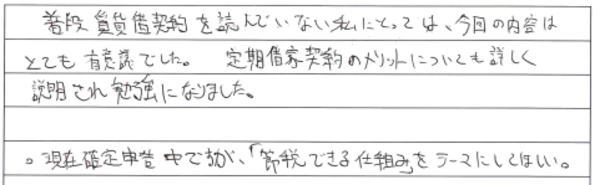 普段賃貸借契約を読んでいない私にとっては、今回の内容は
とても有意義でした。 定期借家契約のメリットについても詳しく
説明され勉強になりました。
。現在確定申告中ですが、「節税できる仕組み」をテーマにしてほしい。